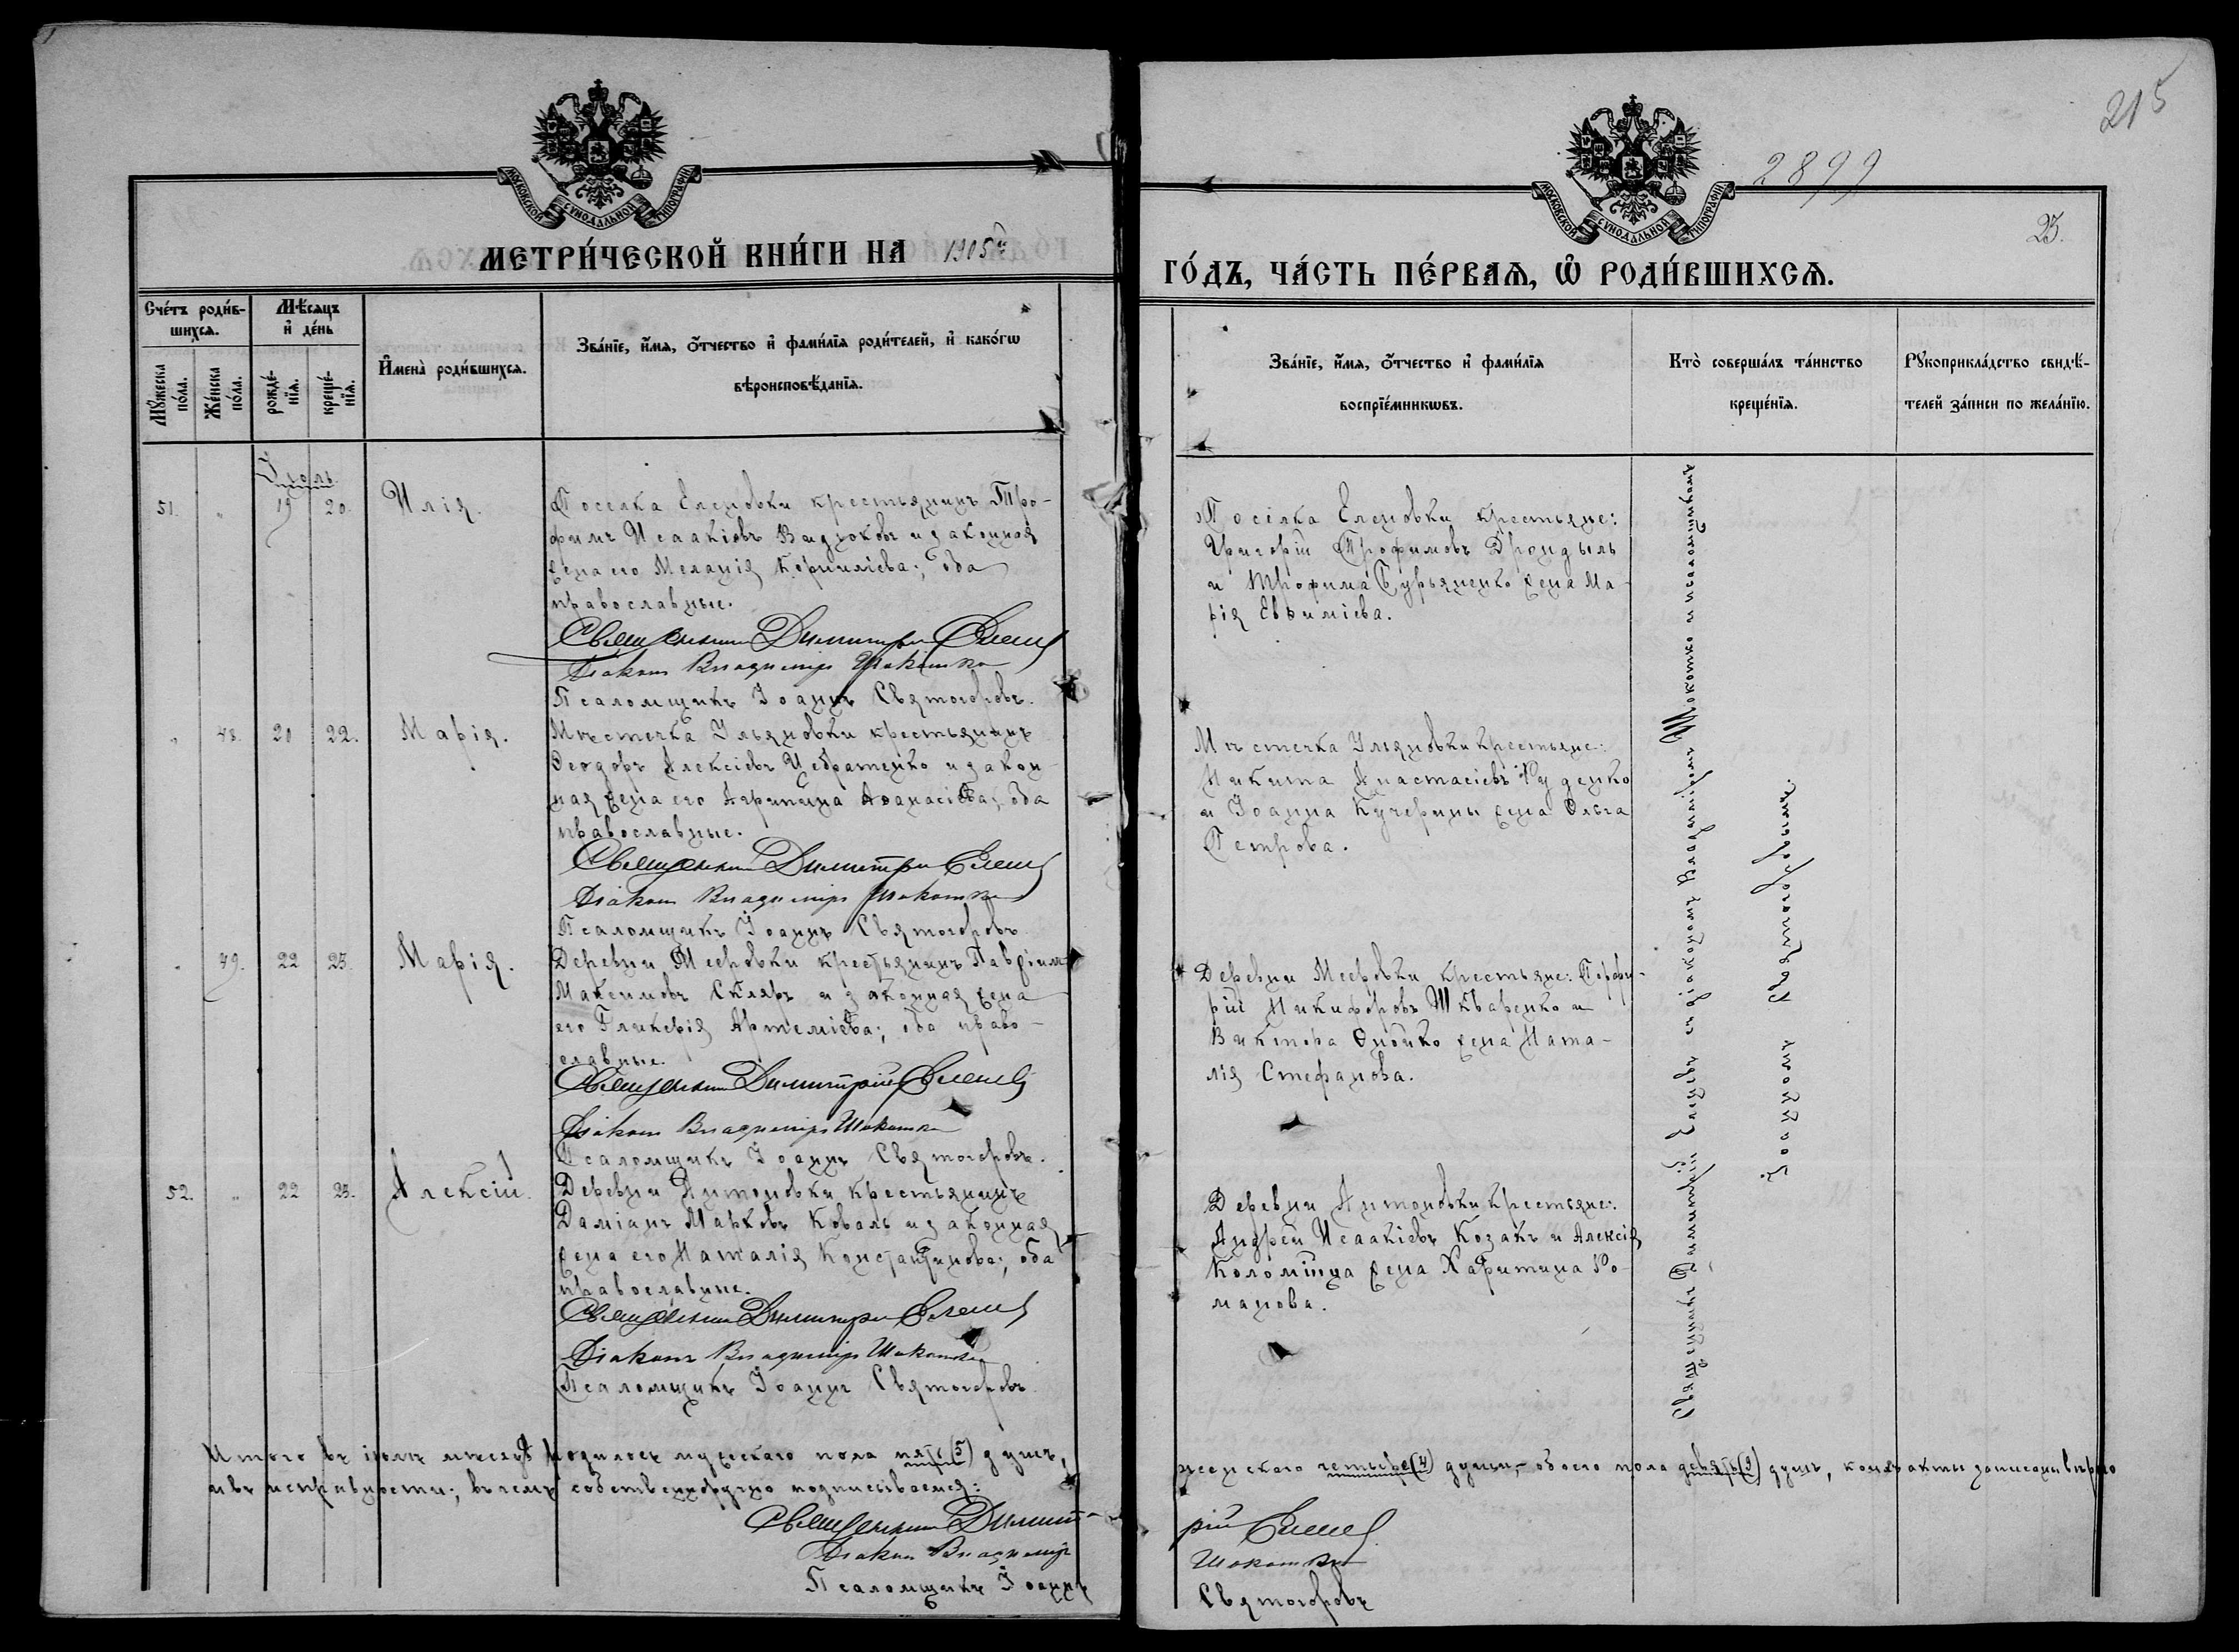 215
2899
23.
МОСКОВСКОЙ СѴНОДАЛЬНОЙ ТИПОГРАФІИ
МОСКОВСКОЙ СѴНОДАЛЬНОЙ ТИПОГРАФІИ
МЕТРИ́ЧЕСКОЙ КНИ́ГИ НА 1905й
ГО́ДЪ, ЧА́СТЬ ПЕ́РВАѦ, Ѡ РОДИ́ВШИХСѦ.
Сче́тъ роди́в-
шихсѧ.
Мѣ́сѧцъ
и҆ де́нь
Мꙋ́жеска по́ла.
Же́нска по́ла.
рожде́-
нїѧ.
креще́-
нїѧ.
И҆мена̀ роди́вшихсѧ.
Зва́нїе, и҆́мѧ, ѻ҆́тчество и҆ фами́лїѧ роди́телей, и҆ како́гѡ
вѣроисповѣ́данїѧ.
Зва́нїе, и҆́мѧ, ѻ҆́тчество и҆ фами́лїѧ
воспрїе́мникѡвъ.
Кто̀ соверша́лъ та́инство
креще́нїѧ.
Рꙋкоприкла́дство свидѣ́-
телей за́писи по жела́нїю.
Іюль.
51. " 19 20. Илія.
Поселка Еленовки крестьянинъ Тро-
фимъ Исаакіевъ Видюковъ и законная
жена его Меланія Корниліева; оба
православные.
Священникъ Димитрій Еленевъ
Діаконъ Владиміръ Шокотко
Псаломщикъ Іоаннъ Святогоровъ.
Посёлка Еленовки крестьяне:
Григорій Трофимовъ Дрондыль
и Трофима Бурьяненко жена Ма-
рія Евѳиміева.
" 48. 20 22. Марія.
Мѣстечка Ульяновки крестьянинъ
Ѳеодоръ Алексіевъ Цебратенко и закон-
ная жена его Агрипина Аѳанасіева; оба
православные.
Священникъ Димитрій Еленевъ
Діаконъ Владиміръ Шокотко
Псаломщикъ Іоаннъ Святогоровъ
Мѣстечка Ульяновки крестьяне:
Никита Анастасіевъ Руденко
и Іоанна Кучерины жена Ольга
Петрова.
" 49. 22 23. Марія.
Деревни Мееровки крестьянинъ Гавріилъ
Максимовъ Скляръ и законная жена
его Гликерія Артеміева; оба право-
славные.
Священникъ Димитрій Еленевъ
Діаконъ Владиміръ Шокотко
Псаломщикъ Іоаннъ Святогоровъ.
Деревни Мееровки крестьяне: Порфи-
рій Никифоровъ Шкваренко и
Виктора жена Ната-
лія Стефанова.
52. " 22 23. Алексій.
Деревни Антоновки крестьянинъ
Даміанъ Марковъ Коваль и законная
жена его Наталія Константинова; оба
православные.
Священникъ Димитрій Еленевъ
Діаконъ Владиміръ Шокотко
Псаломщикъ Іоаннъ Святогоровъ
Деревни Антоновки крестьяне:
Андрей Исаакіевъ Козакъ и Алексія
Коломійца жена Харитина Ро-
манова.
Священникъ Димитрій Еленевъ съ діакономъ Владиміромъ Шокотко и псаломщикомъ
Іоанномъ Святогоровымъ.
Итого въ іюлѣ мѣсяцѣ родилось мужескаго пола пять (5) душъ,
женскаго четыре (4) души,- обоего пола девять (9) душъ, коихъ акты записаны вѣрно
и въ исправности; въ чемъ собственноручно подписываемся:
Священникъ Димит-
рій Еленевъ
Діаконъ Владиміръ
Шокотко
Псаломщикъ Іоаннъ
Святогоровъ